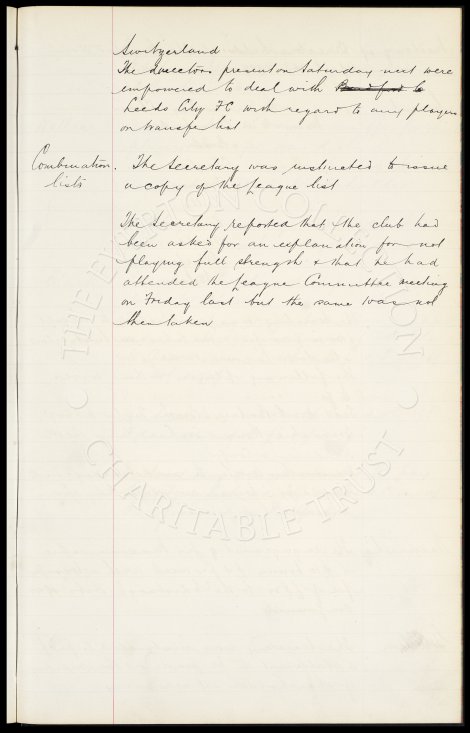 Switzerland
The directors present on Saturday next were
empowered to deal with
Leeds City FC with regard to any players
on transfer list
Combination
lists
The Secretary was instructed to issue
a copy of the League list
The Secretary reported that the club had
been asked for an explanation for not
playing full strength & that he had
attended the League Committee meeting
on Friday last but the same was not
then taken
THE EVERTON COLLECTION
CHARITABLE TRUST